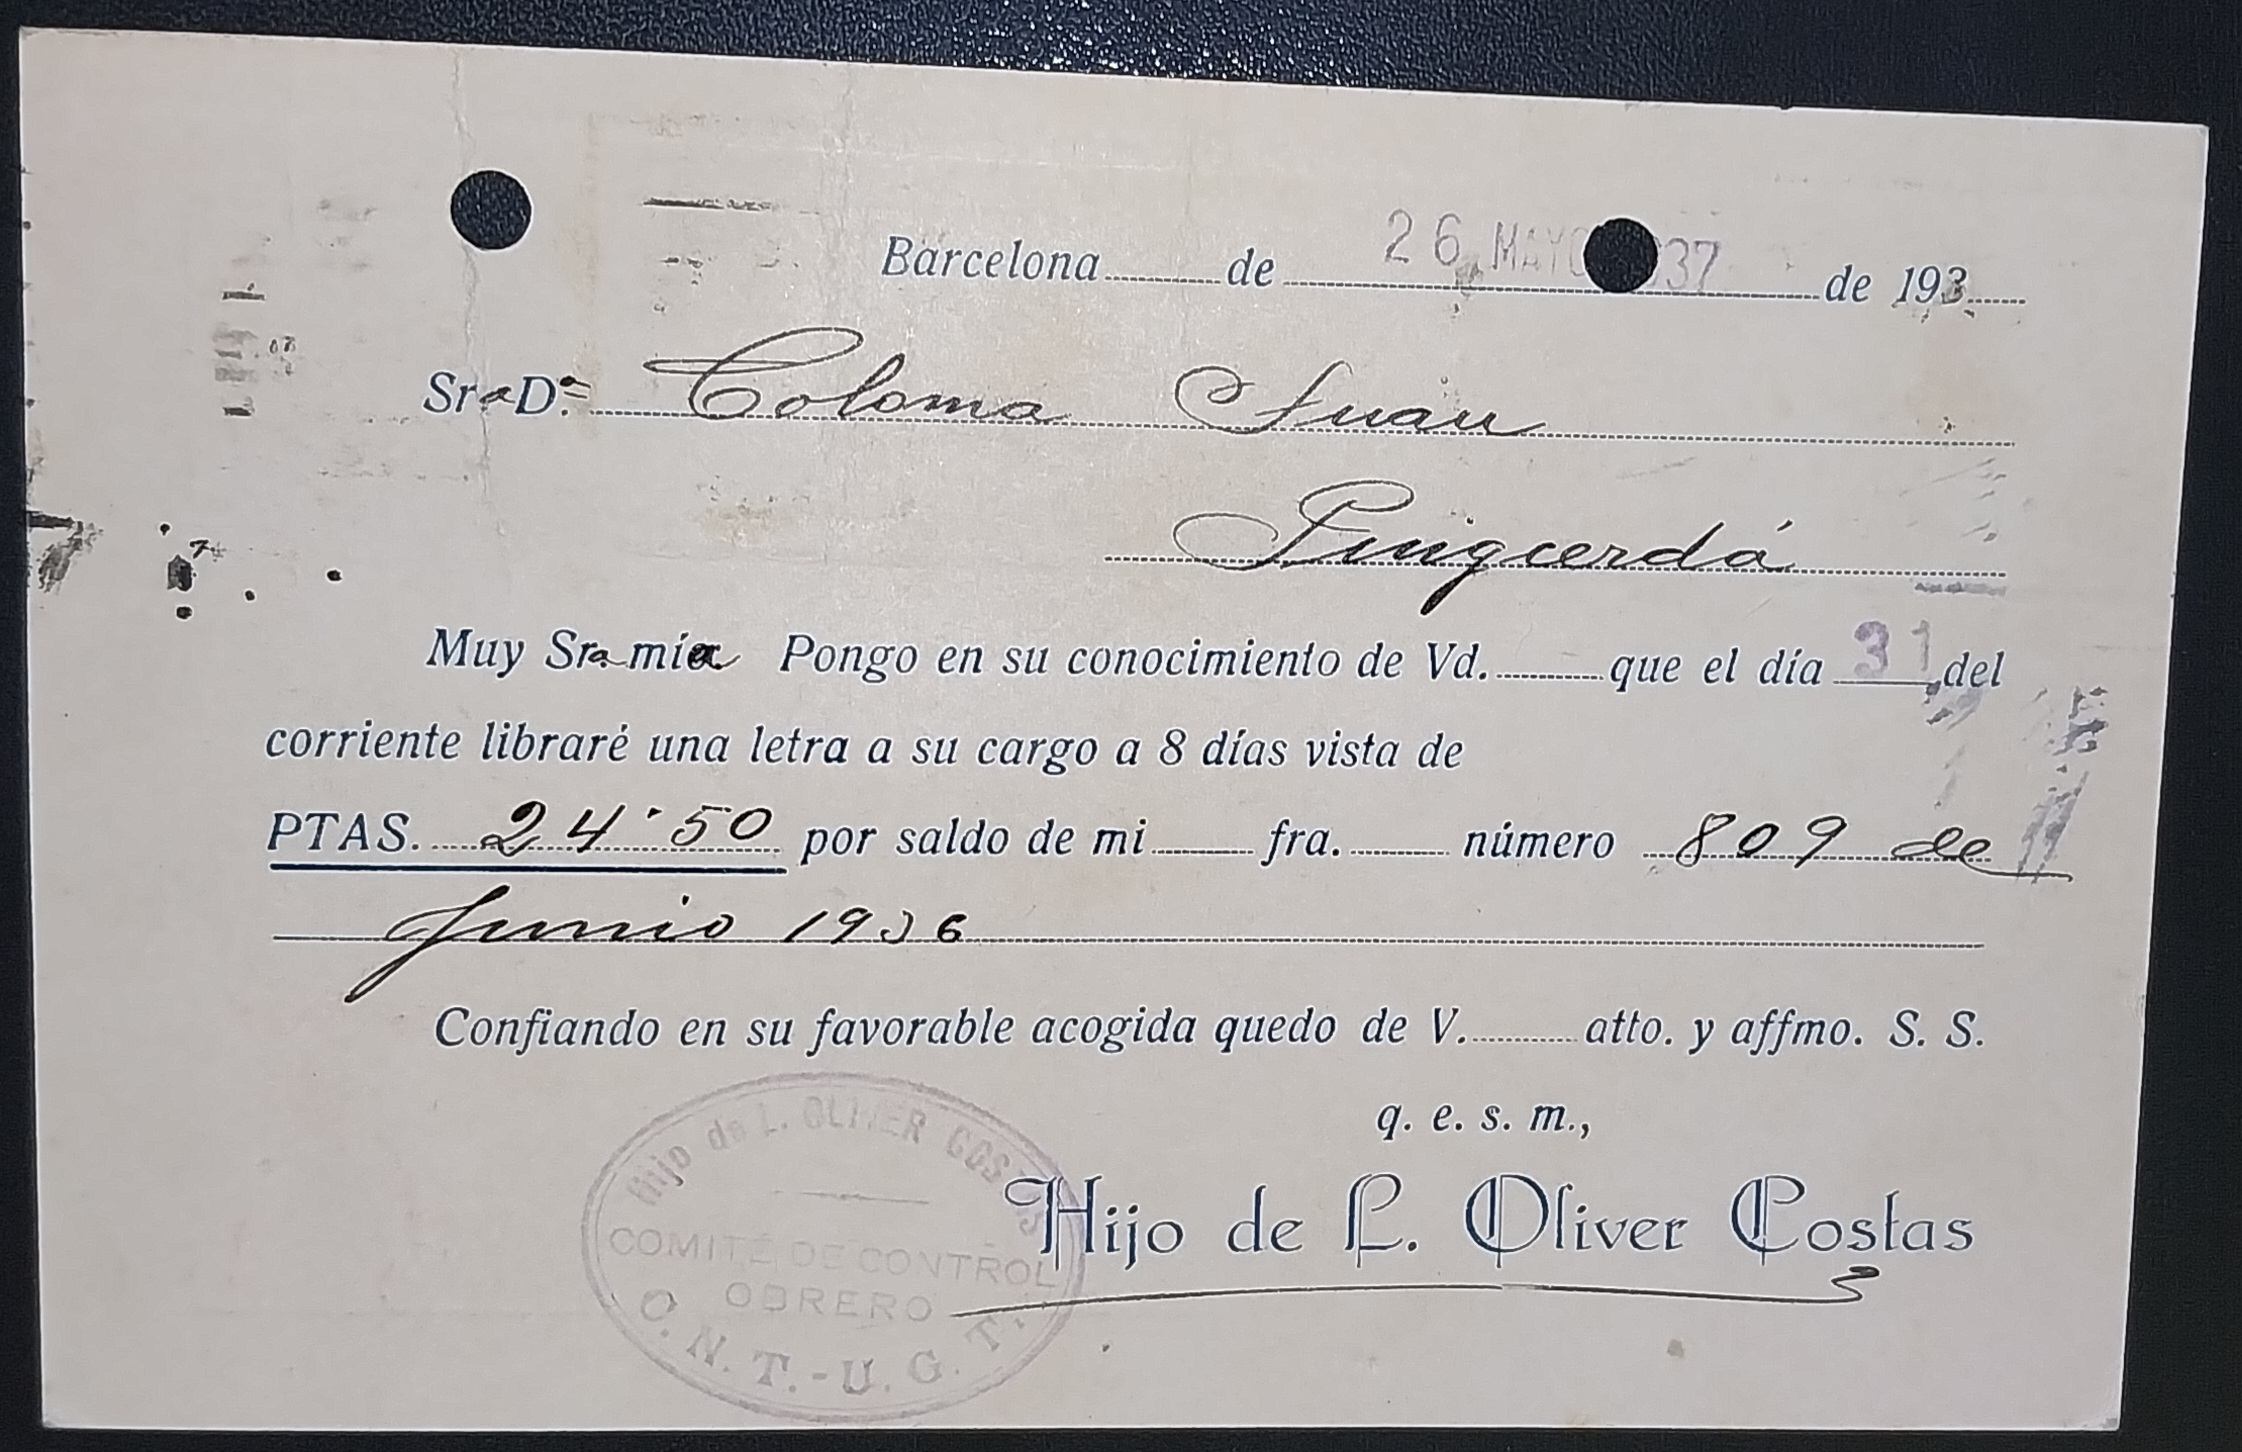 Barcelona de 26 MAYO 937 de 193
Sra D.ª Coloma Juan
Puigcerdá
Muy Sra mía Pongo en su conocimiento de Vd. que el día 31 del
corriente libraré una letra a su cargo a 8 días vista de
PTAS. 24'50 por saldo de mi fra. número 809 de
Junio 1936
Confiando en su favorable acogida quedo de V. atto. y affmo. S. S.
q. e. s. m.,
Hijo de L. Oliver Costas
Hijo de L. OLIVER COSTAS
COMITÉ DE CONTROL
OBRERO
C. N. T. - U. G. T.